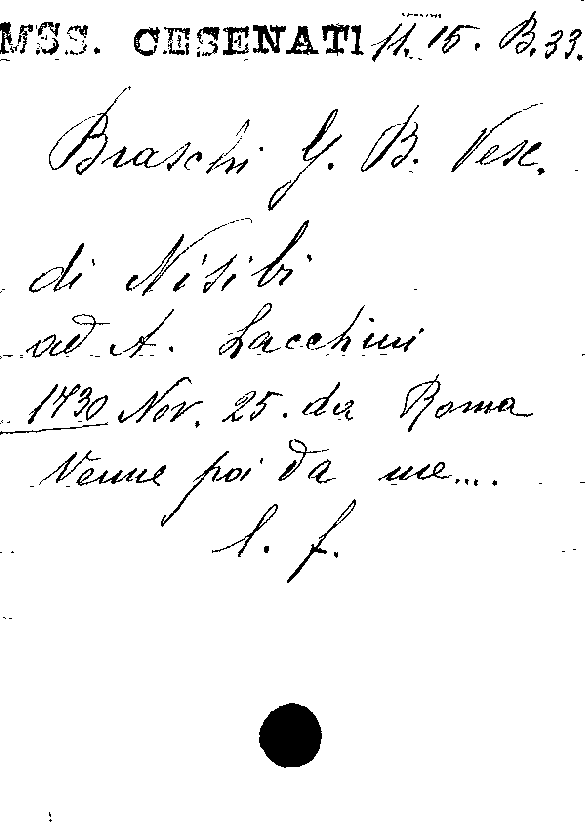 MSS. CESENATI 11. 15. B. 33.
Braschi G. B. Vesc.
di Nisibi
ad A. Lacchini
1730 Nov. 25. da Roma
Venne poi da me....
l. f.